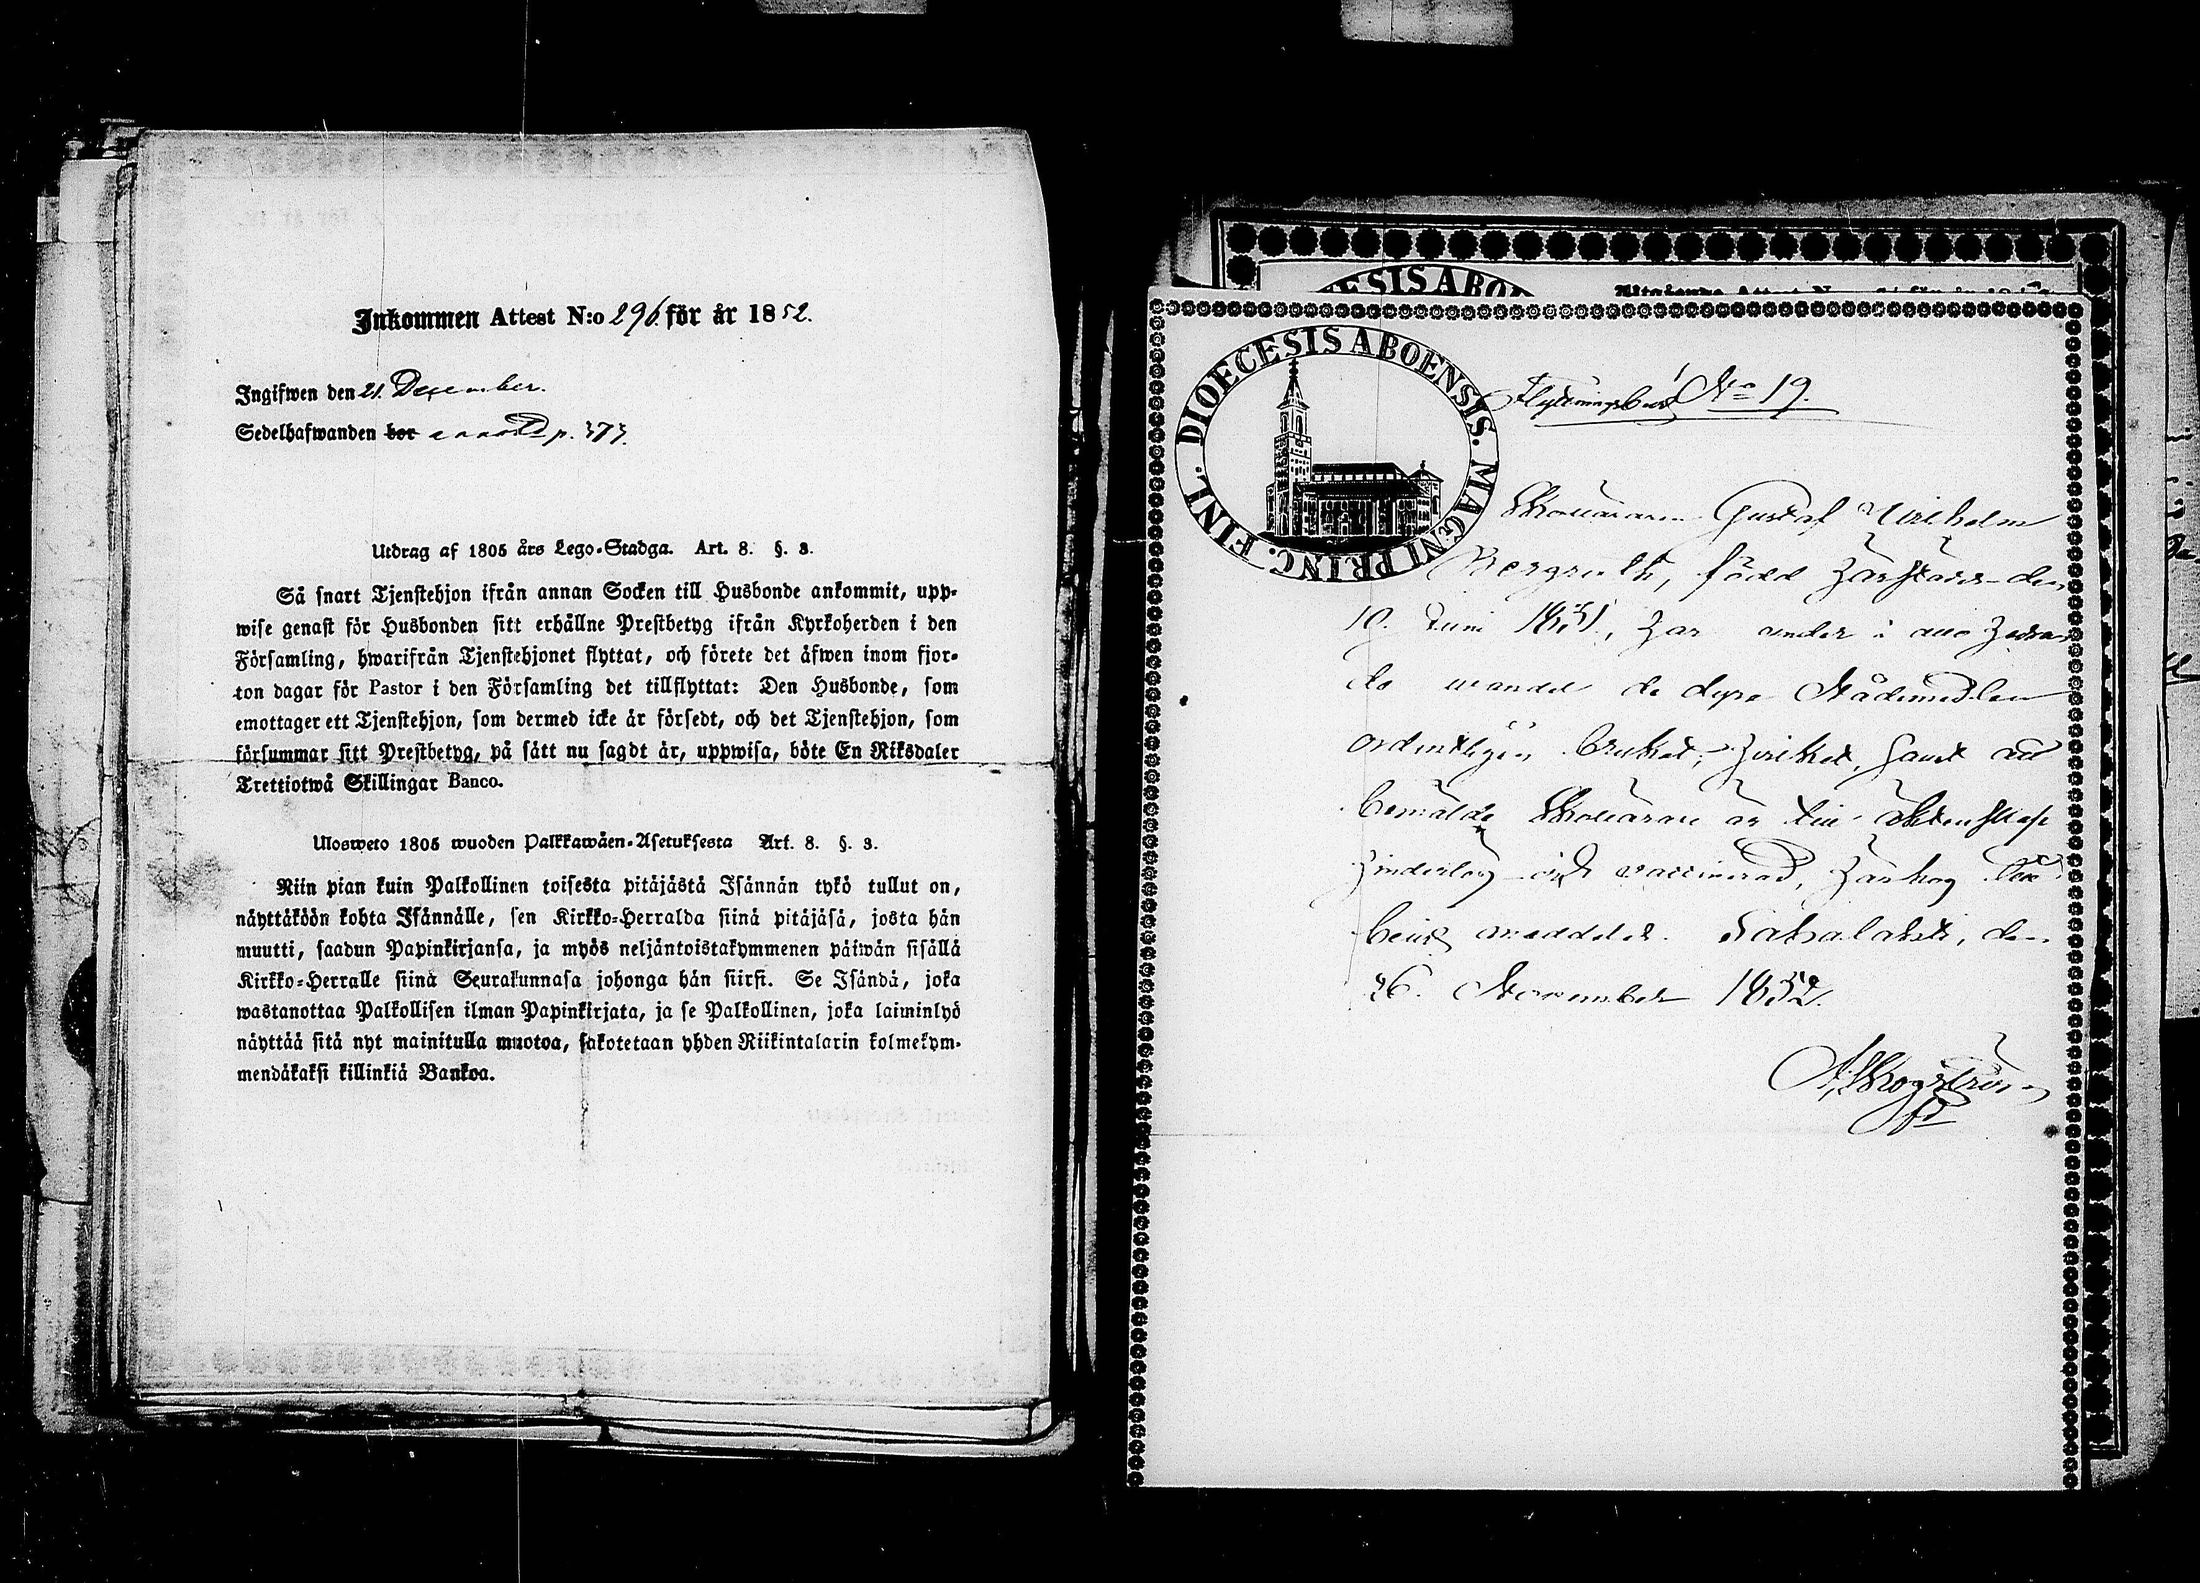 Inkommen Attest N:o 296. för år 1852.
Ingifwen den 21. December.
Sedelhafwanden bor p. 373.
Utdrag af 1805 års Lego-Stadga. Art. 8. §. 3.
Så snart Tjenstehjon ifrån annan Socken till Husbonde ankommit, upp-
wise genast för Husbonden sitt erhållne Prestbetyg ifrån Kyrkoherden i den
Församling, hwarifrån Tjenstehjonet flyttat, och förete det äfwen inom fjor-
ton dagar för Pastor i den Församling det tillflyttat: Den Husbonde, som
emottager ett Tjenstehjon, som dermed icke är försedt, och det Tjenstehjon, som
försummar sitt Prestbetyg, på sätt nu sagdt är, uppwisa, böte En Riksdaler
Trettiotwå Skillingar Banco.
Ulosweto 1805 wuoden Palkkawäen-Asetuksesta Art. 8. §. 3.
Niin pian kuin Palkollinen toisesta pitäjästä Isännän tykö tullut on,
näyttäköön kohta Isännälle, sen Kirkko-Herralda siinä pitäjäsä, josta hän
muutti, saadun Papinkirjansa, ja myös neljäntoistakymmenen päiwän sisällä
Kirkko-Herralle siinä Seurakunnasa johonga hän siirsi. Se Isändä, joka
wastanottaa Palkollisen ilman Papinkirjata, ja se Palkollinen, joka laiminlyö
näyttää sitä nyt mainitulla muotoa, sakotetaan yhden Riikintalarin kolmekym-
mendäkaksi killinkiä Bankoa.
ESIS ABO
Utgående Attest N
DIOECESIS ABOENSIS. MAGNI PRINC. FINL.
Flyttningsbet. No 19.
Skomakaren Gustaf Wilhelm
Bergroth, född härstädes den
10. Juni 1831, har under i allo hedran-
de wandel de dyra Nådemedlen
ordentligen brukat, hwilket, samt att
bemälde är till äktenskap
hinderlös och vaccinerad, härhos till
bewis meddelas. Sahalaks, den
26. November 1852.
A. Skogström